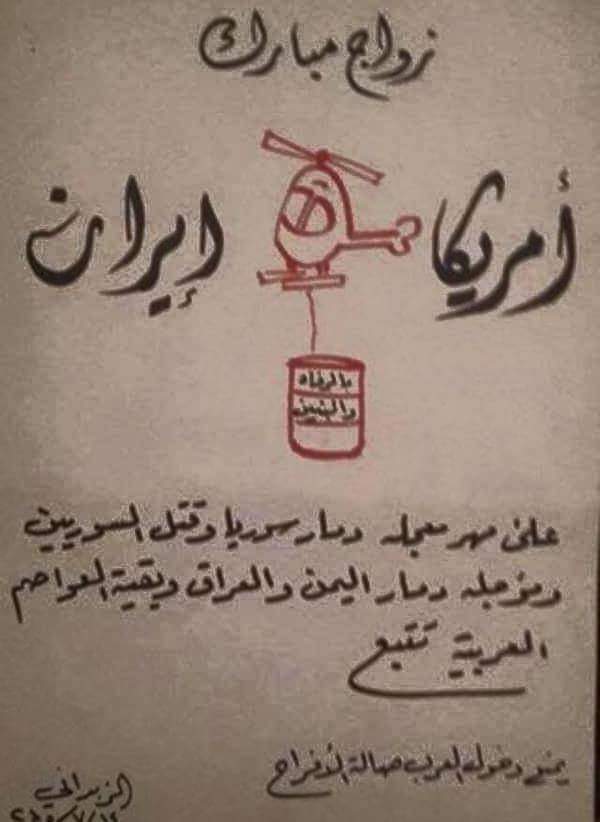 زواج مبارك
أمريكا إيران
بالرفاه
والبنين
على مهر معجله دمار سوريا وقتل السوريين
ومؤجله دمار اليمن والعراق وبقية العواصم
العربية تتبع
يمنع دخول العرب صالة الأفراح
الزبداني